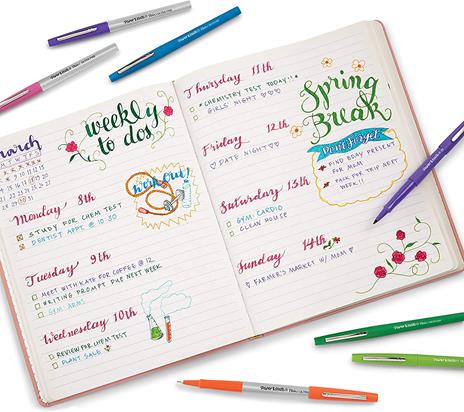 March
weekly
to dos
Monday 8th
STUDY FOR CHEM TEST
DENTIST APPT. @ 10:30
work out!
Tuesday 9th
MEET WITH KATE FOR COFFEE @ 12
WRITING PROMPT DUE NEXT WEEK
GYM: ARMS
Wednesday 10th
REVIEW FOR CHEM TEST
PLANT SALE
Thursday 11th
*CHEMISTRY TEST TODAY!!*
GIRLS NIGHT ♡♡♡
Friday 12th
♡ DATE NIGHT ♡
Saturday 13th
GYM: CARDIO
CLEAN HOUSE
Sunday 14th
♡ FARMER'S MARKET W/ MOM ♡
Spring
Break
Don't Forget
FIND BDAY PRESENT
FOR MOM
PACK FOR TRIP NEXT
WEEK!!
Paper Mate
Paper Mate
Paper Mate
Paper Mate
Paper Mate
Paper Mate
Paper Mate